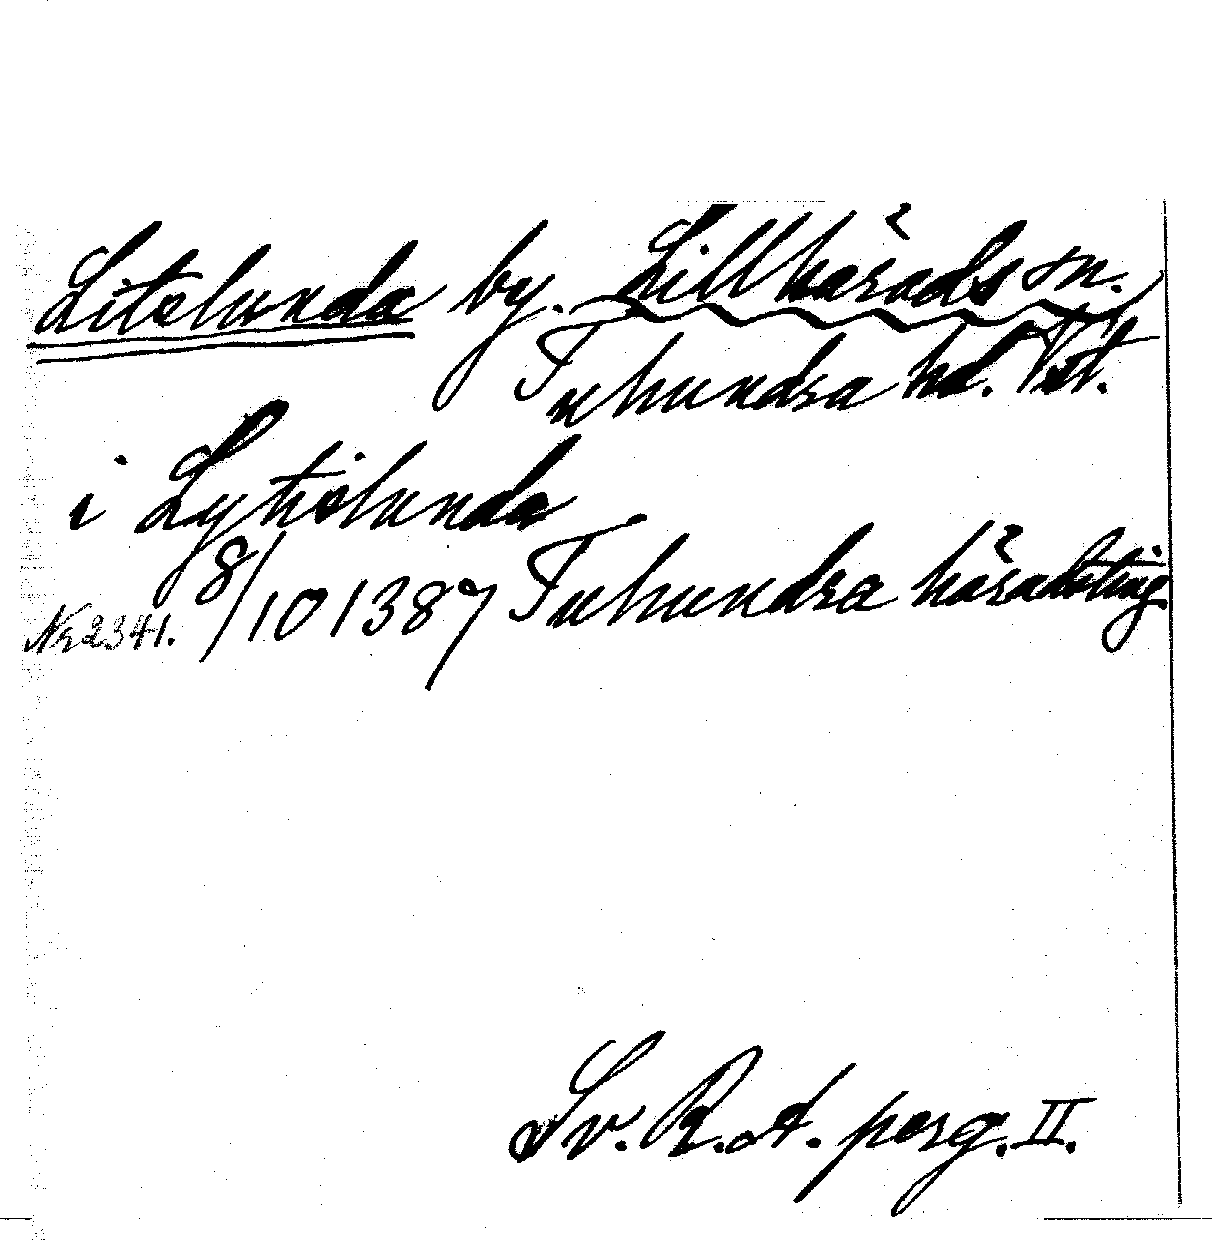 Litslunda by. Lillhärads sn.
Tuhundra hd. Vstl.
i Lytislunda
8/10 1387 Tuhundra häradsting
Nr 2341.
Sv. R. A. perg. II.